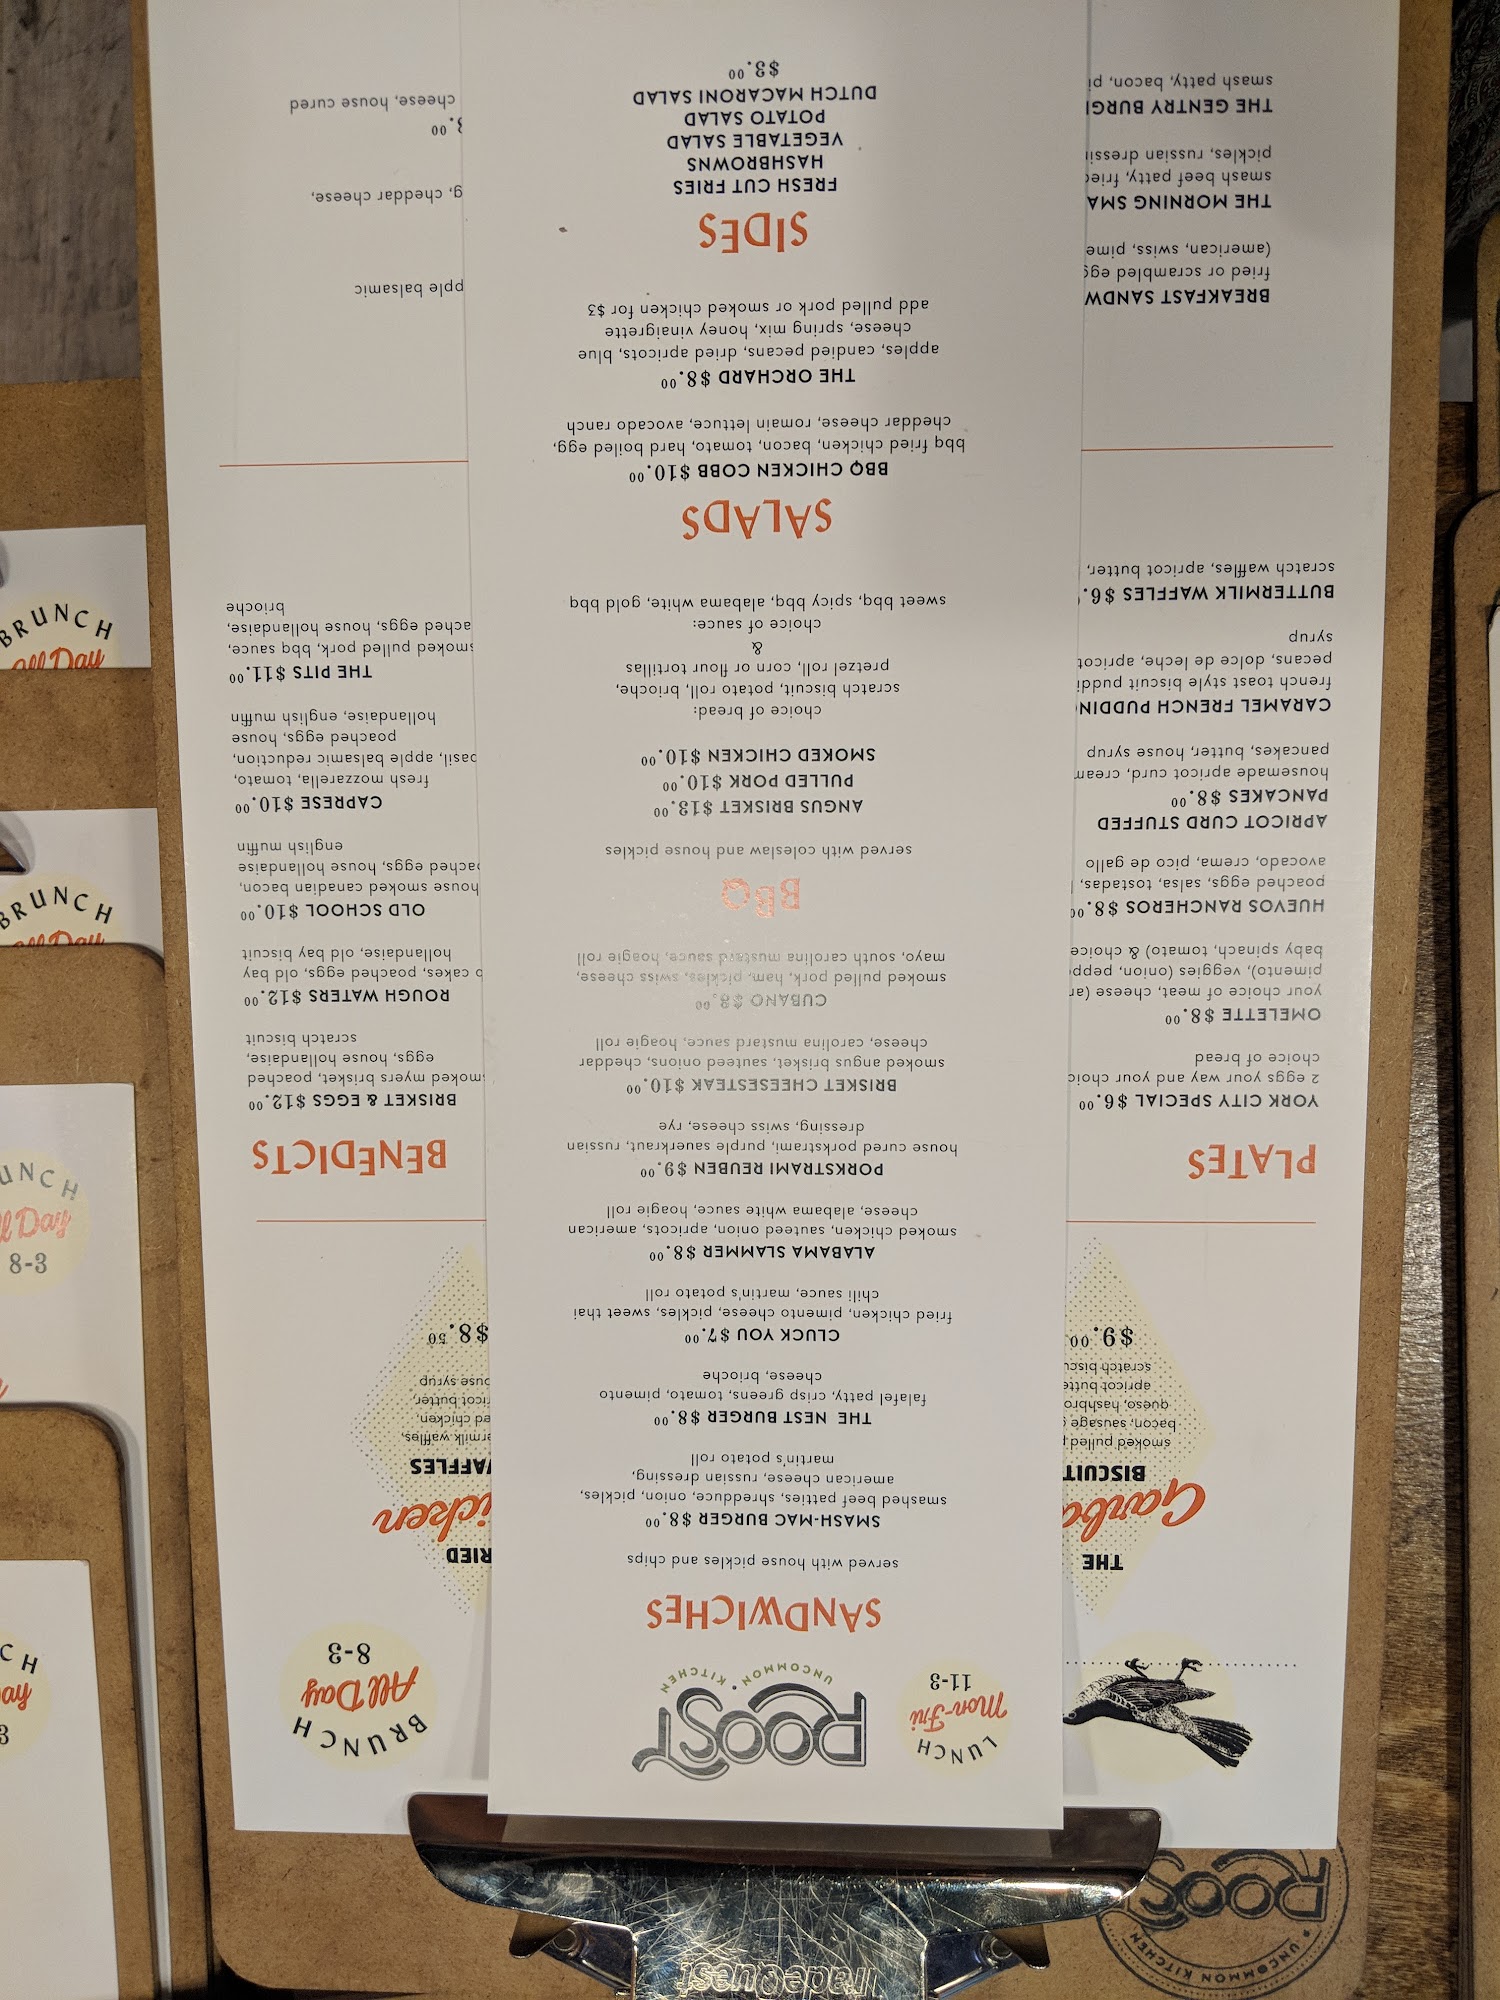 LUNCH
Mon-Fri
11-3
ROOST
UNCOMMON • KITCHEN
SANDWICHES
served with house pickles and chips
SMASH-MAC BURGER $8.00
smashed beef patties, shredduce, onion, pickles,
american cheese, russian dressing,
martin's potato roll
THE NEST BURGER $8.00
falafel patty, crisp greens, tomato, pimento
cheese, brioche
CLUCK YOU $7.00
fried chicken, pimento cheese, pickles, sweet thai
chili sauce, martin's potato roll
ALABAMA SLAMMER $8.00
smoked chicken, sauteed onion, apricots, american
cheese, alabama white sauce, hoagie roll
PORKSTRAMI REUBEN $9.00
house cured porkstrami, purple sauerkraut, russian
dressing, swiss cheese, rye
BRISKET CHEESESTEAK $10.00
smoked angus brisket, sauteed onions, cheddar
cheese, carolina mustard sauce, hoagie roll
CUBANO $8.00
smoked pulled pork, ham, pickles, swiss cheese,
mayo, south carolina mustard sauce, hoagie roll
BBQ
served with coleslaw and house pickles
ANGUS BRISKET $13.00
PULLED PORK $10.00
SMOKED CHICKEN $10.00
choice of bread:
scratch biscuit, potato roll, brioche,
pretzel roll, corn or flour tortillas
&
choice of sauce:
sweet bbq, spicy bbq, alabama white, gold bbq
SALADS
BBQ CHICKEN COBB $10.00
bbq fried chicken, bacon, tomato, hard boiled egg,
cheddar cheese, romain lettuce, avocado ranch
THE ORCHARD $8.00
apples, candied pecans, dried apricots, blue
cheese, spring mix, honey vinaigrette
add pulled pork or smoked chicken for $3
SIDES
FRESH CUT FRIES
HASHBROWNS
VEGETABLE SALAD
POTATO SALAD
DUTCH MACARONI SALAD
$3.00
THE
Garba
BISCUIT
smoked pulled
bacon, sausage
queso, hashbro
apricot butte
scratch biscu
$9.00
PLATES
YORK CITY SPECIAL $6.00
2 eggs your way and your choic
choice of bread
OMELETTE $8.00
your choice of meat, cheese (a
pimento), veggies (onion, pepp
baby spinach, tomato) & choice
HUEVOS RANCHEROS $8.00
poached eggs, salsa, tostadas,
avocado, crema, pico de gallo
APRICOT CURD STUFFED
PANCAKES $8.00
housemade apricot curd, cream
pancakes, butter, house syrup
CARAMEL FRENCH PUDDIN
french toast style biscuit puddi
pecans, dolce de leche, apricot
syrup
BUTTERMILK WAFFLES $6.
scratch waffles, apricot butter,
BREAKFAST SANDW
fried or scrambled egg
(american, swiss, pime
THE MORNING SMA
smash beef patty, fried
pickles, russian dressin
THE GENTRY BURG
smash patty, bacon, pi
BRUNCH
All Day
8-3
RIED
icken
AFFLES
ermilk waffles,
ed chicken,
icot butter,
ouse syrup
$8.50
BENEDICTS
BRISKET & EGGS $12.00
smoked myers brisket, poached
eggs, house hollandaise,
scratch biscuit
ROUGH WATERS $12.00
b cakes, poached eggs, old bay
hollandaise, old bay biscuit
OLD SCHOOL $10.00
house smoked canadian bacon,
oached eggs, house hollandaise
english muffin
CAPRESE $10.00
fresh mozzarella, tomato,
basil, apple balsamic reduction,
poached eggs, house
hollandaise, english muffin
THE PITS $11.00
smoked pulled pork, bbq sauce,
ached eggs, house hollandaise,
brioche
pple balsamic
g, cheddar cheese,
.00
cheese, house cured
BRUNCH
All Day
BRUNCH
All Day
UNCH
ll Day
8-3
CH
ay
3
ROOST
UNCOMMON KITCHEN